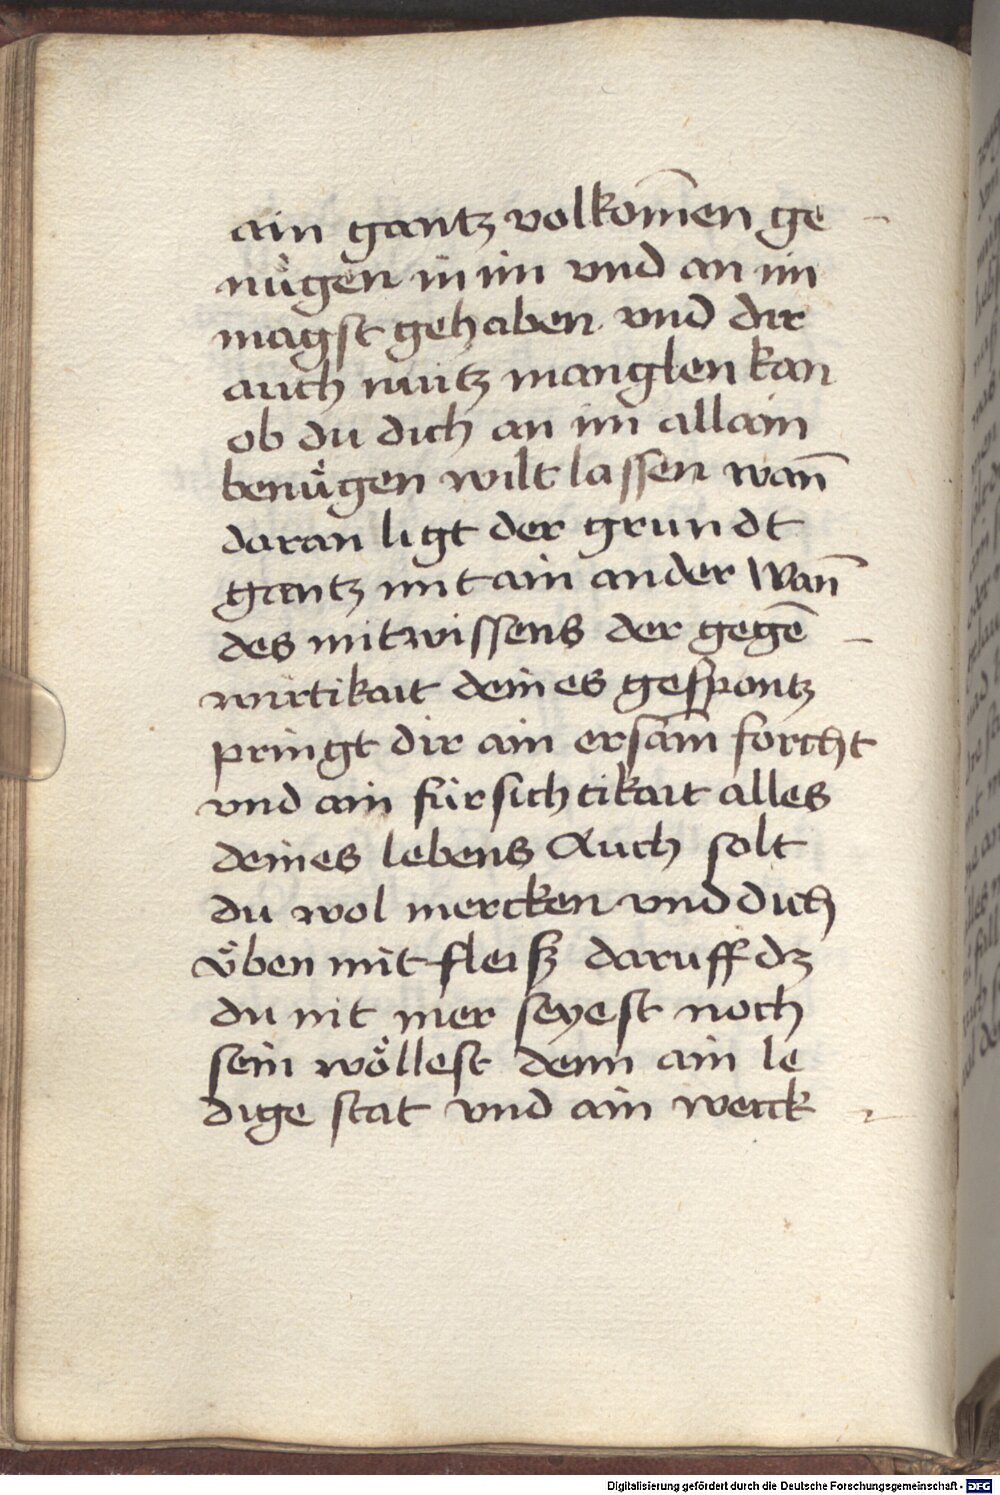 ain gantz volkom̄en ge
nu̇gen in im vnd an im
magst gehaben vnd dir
auch nuntz manglen kan
ob du dich an im allain
benu̇gen wilt lassen wan̄
daran ligt der grundt
gantz mit ain ander Wan̄
des mitwissens der gegē
wirtikait deines gespontz
pringt dir ain ersam̄ forcht
vnd ain fürsichtikait alles
deines lebens Auch solt
du wol mercken vnd dich
v̈ben mit fleisz daruff dz
du nit mer seyest noch
sein wöllest denn ain le
dige stat vnd ain werck
Digitalisierung gefördert durch die Deutsche Forschungsgemeinschaft - DFG